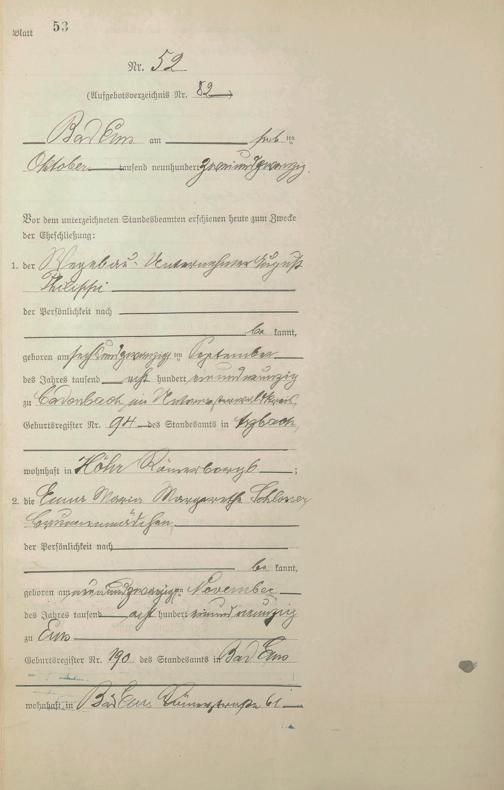 Blatt 53
Nr. 52
(Aufgebotsverzeichnis Nr. 82)
Bad Ems am ten
Oktober tausend neunhundert zweiundzwanzig.
Vor dem unterzeichneten Standesbeamten erschienen heute zum Zwecke
der Eheschließung:
1. der Wegebau-Unternehmer August
Philippi
der Persönlichkeit nach
be kannt,
geboren am sechsundzwanzig ten September
des Jahres tausend acht hundert einundneunzig
zu Cadenbach, im Unterwesterwaldkreis,
Geburtsregister Nr. 94 des Standesamts in Arzbach,
wohnhaft in Höhr ;
2. die Emma Maria Margarethe
Brunnenmädchen
der Persönlichkeit nach
be kannt,
geboren am neunundzwanzig ten November
des Jahres tausend acht hundert einundneunzig
zu Ems
Geburtsregister Nr. 190 des Standesamts in Bad Ems
wohnhaft in Bad Ems Römerstraße 61